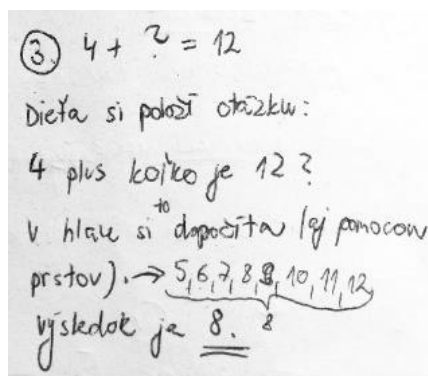 3. 4 + ? = 12
Dieťa si položí otázku:
4 plus koľko je 12?
V hlave si to dopočíta (aj pomocou
prstov). → 5, 6, 7, 8, 9, 10, 11, 12
výsledok je 8. 8